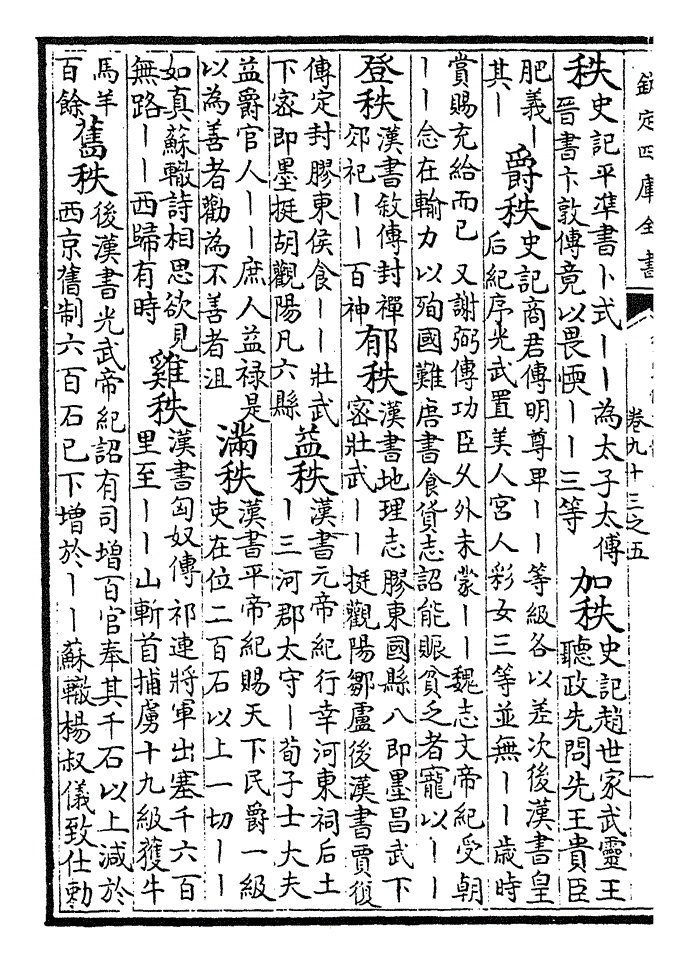 欽定四庫全書
卷九十三之五
秩 史記平準書卜式——為太子太傅晉書卞敦傳竟以畏愞——三等 加秩 史記趙世家武靈王聽政先問先王貴臣
肥義—其— 爵秩 史記商君傳明尊卑——等級各以差次後漢書皇后紀序光武置美人宮人彩女三等並無——歲時
賞賜充給而已 又謝弼傳功臣久外未蒙——魏志文帝紀受朝
——念在輸力以殉國難唐書食貨志詔能賑貧乏者寵以——
登秩 漢書敘傳封禪郊祀——百神 郁秩 漢書地理志膠東國縣八即墨昌武下密壯武——挺觀陽鄒盧後漢書賈復
傳定封膠東侯食——壯武下密即墨挺胡觀陽凡六縣 益秩 漢書元帝紀行幸河東祠后土—三河郡太守—荀子士大夫
益爵官人——庶人益祿是以為善者勸為不善者沮 滿秩 漢書平帝紀賜天下民爵一級吏在位二百石以上一切——
如真蘇轍詩相思欲見無路——西歸有時 雞秩 漢書匈奴傳祁連將軍出塞千六百里至——山斬首捕虜十九級獲牛
馬羊百餘 舊秩 後漢書光武帝紀詔有司增百官奉其千石以上減於西京舊制六百石已下增於——蘇轍楊叔儀致仕勅